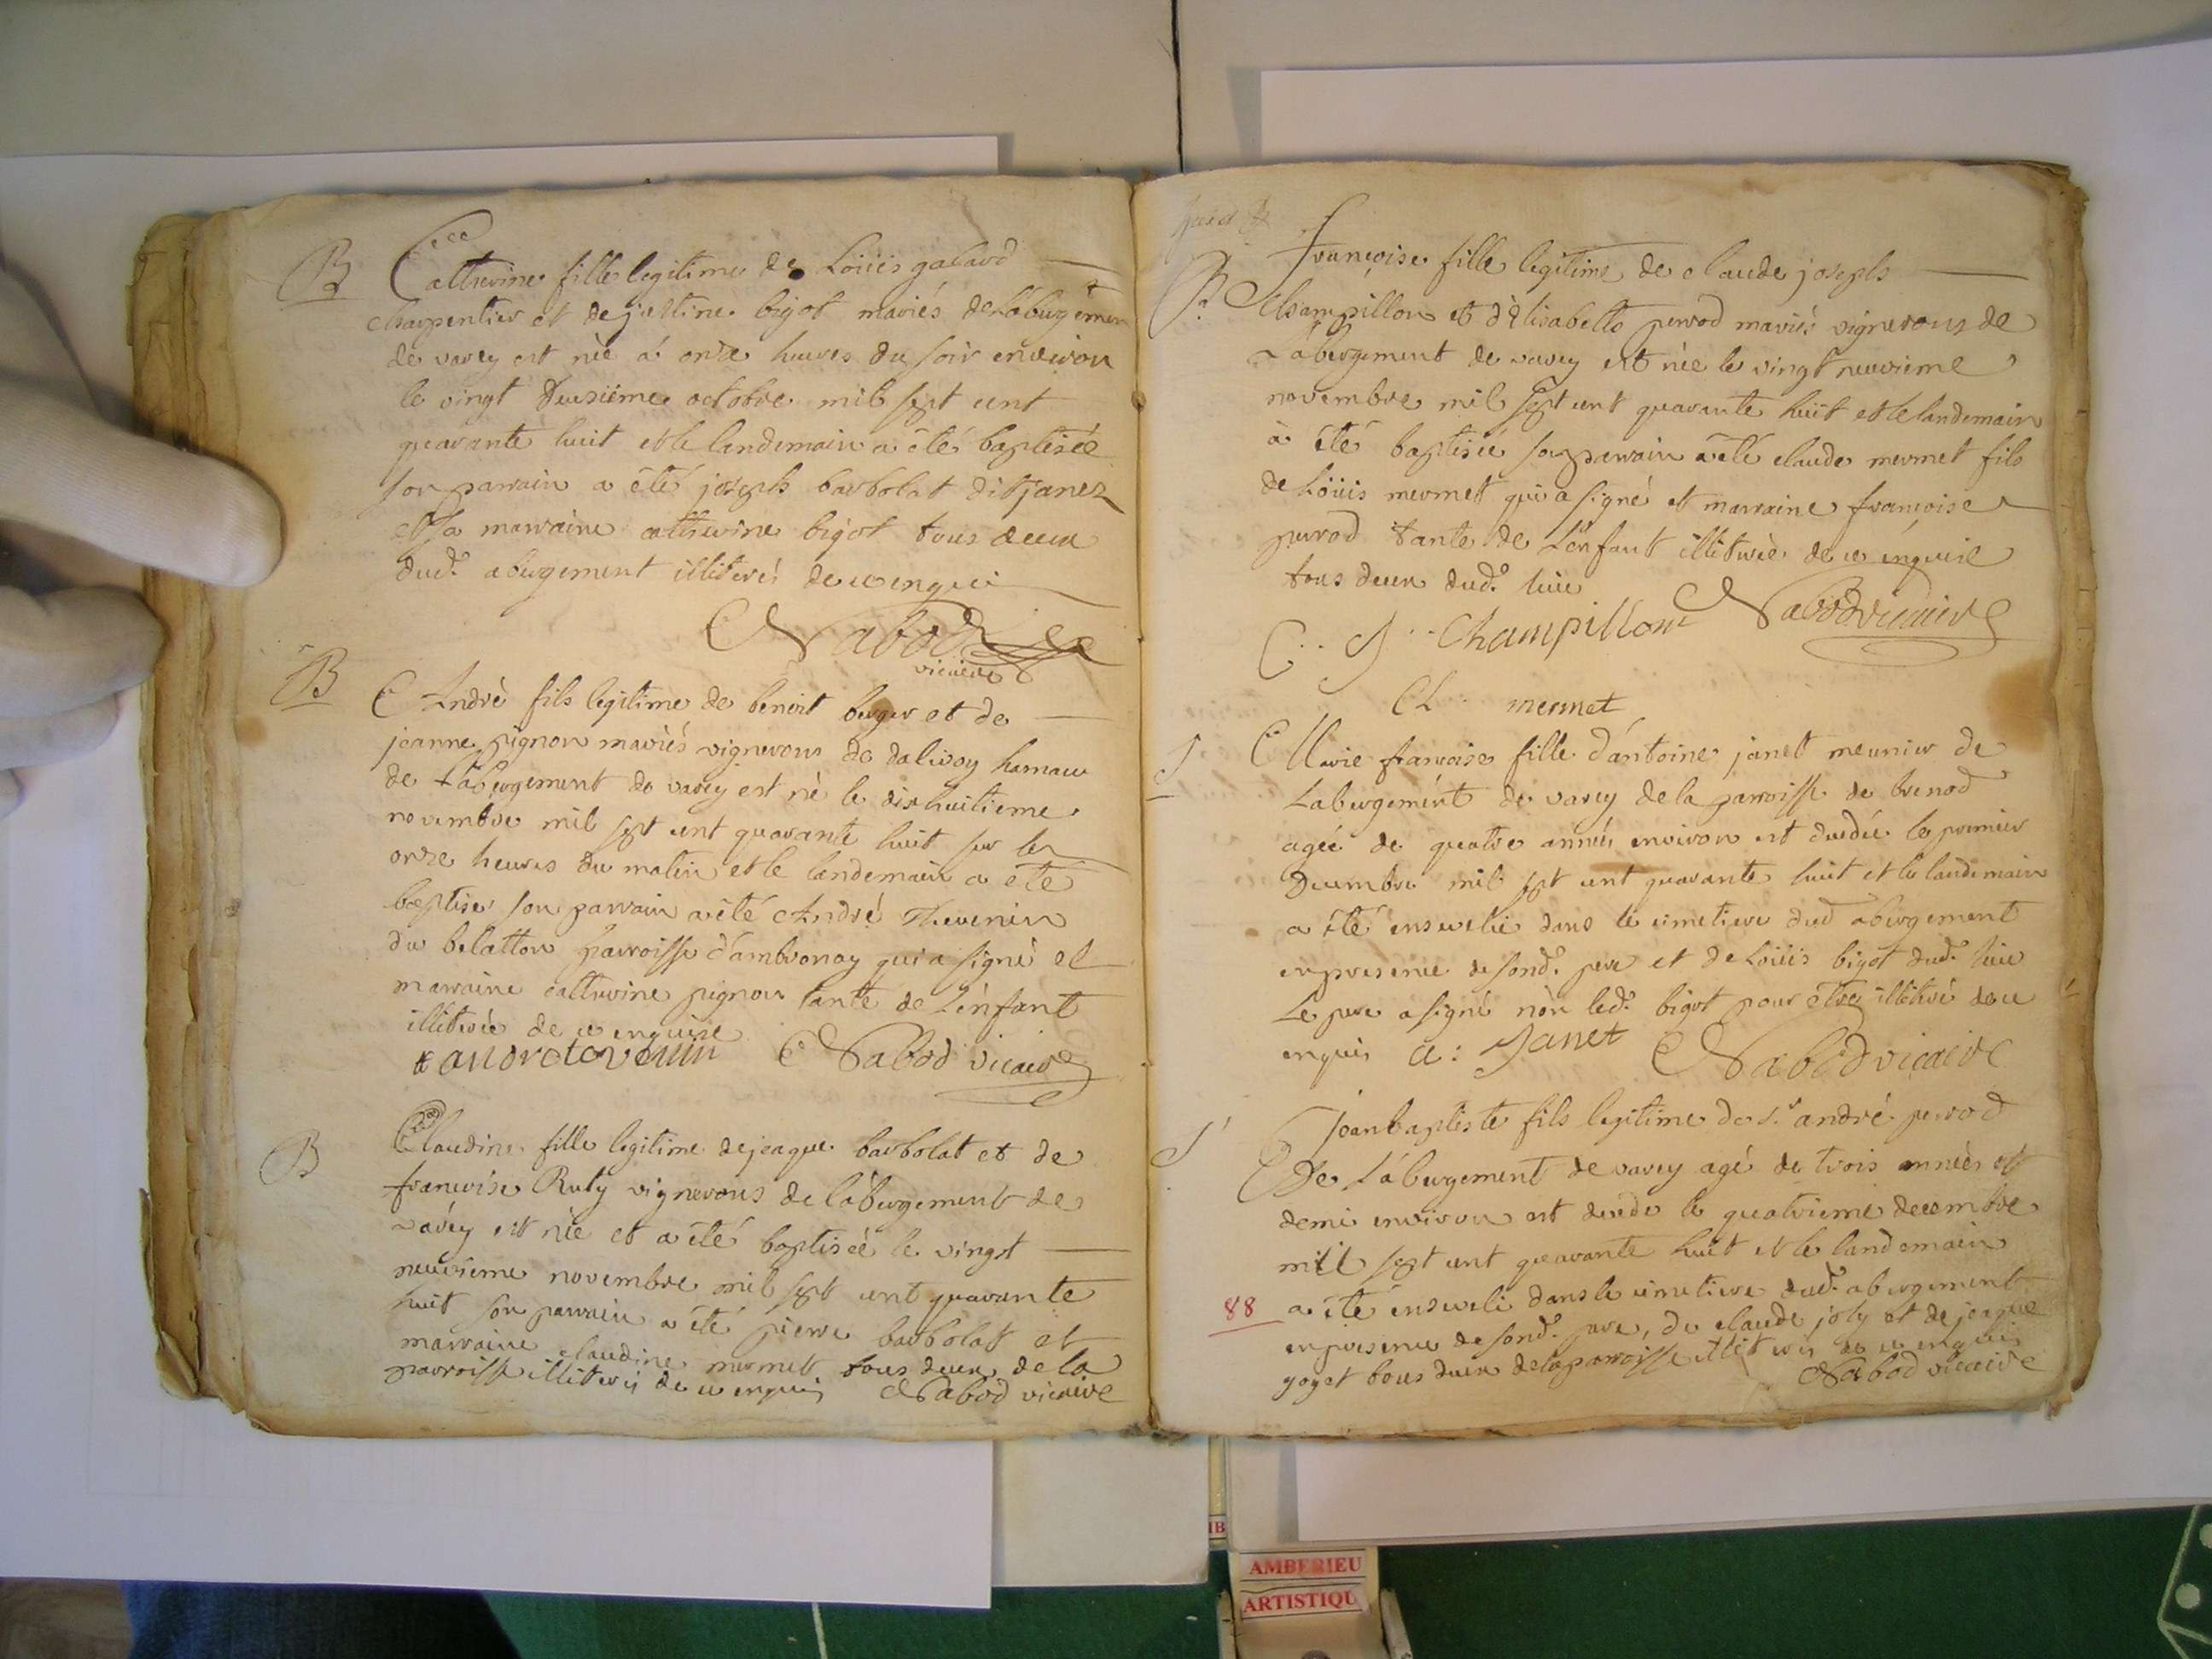 B
Catherine fille legitime de Loüis galard
charpentier et de justine bigot mariés de L'abergemen
de varey est née á onze heures du soir environ
le vingt deusiéme octobre mil sept cent
quarante huit et le landemain a été baptisée
son parrain a été joseph barbolat dit janez
et sa marraine catherine bigot tous deux
dud.º abergement illiterés de ce enquis
Nabod
vicaire
B
André fils legitime de benoit berger et de
jeanne pignon mariés vignerons de dalivoy hamau
de L'abergement de varey est né le dixhuitieme
novembre mil sept cent quarante huit sur les
onze heures du matin et le landemain a été
baptise son parrain a été André Thevenin
du belatton parroisse d'ambronay qui a signé et
marraine catherine pignon tante de L'enfant
illiterée de ce enquise
andre tevenin Nabod vicaire
B
Claudine fille legitime de jeaque barbolat et de
francoise Ruty vignerons de l'abergement de
varey est née et a été baptisée le vingt
neuvieme novembre mil sept cent quarante
huit son parrain a été pierre barbolat et
marraine claudine mermet tous deux de la
parroisse illiterés de ce enquis Nabod vicaire
B
francoise fille legitime de claude joseph
Champillon et d'Elisabette perrod mariés vignerons de
L'abergement de varey est née le vingt neuvieme
novembre mil sept cent quarante huit et le landemain
à été baptisée son parrain a été claude mermet fils
de Loüis mermet qui a signé et marraine francoise
perrod tante de L'enfant illiterée de ce enquise
tous deux dud.º lieu
C. J. Champillon Nabod vicaire
CL mermet
S
Marie francoise fille d'antoine janet meunier de
Labergement de varey de la parroisse de brenod
agée de quatre années environ est decedée le premier
decembre mil sept cent quarante huit et le landemain
a été ensevelie dans le cimetiere dud abergement
en presence de sond.º pere et de Loüis bigot dud.º lieu
Le pere a signé non led.º bigot pour étre illitéré de ce
enquis a: Janet Nabod vicaire
S
Jeanbaptiste fils legitime de s.r andré perrod
De L'abergement de varey agé de trois années et
demi environ est decedé le quatrieme decembre
mil sept cent quarante huit et le landemain
88 a été enseveli dans le cimetiere dud.º abergement
en presence de sond.º pere, de claude joly et de jeaque
goyet tous deux de la parroisse illiterés de ce enquis
Nabod vicaire
AMBERIEU
ARTISTIQU